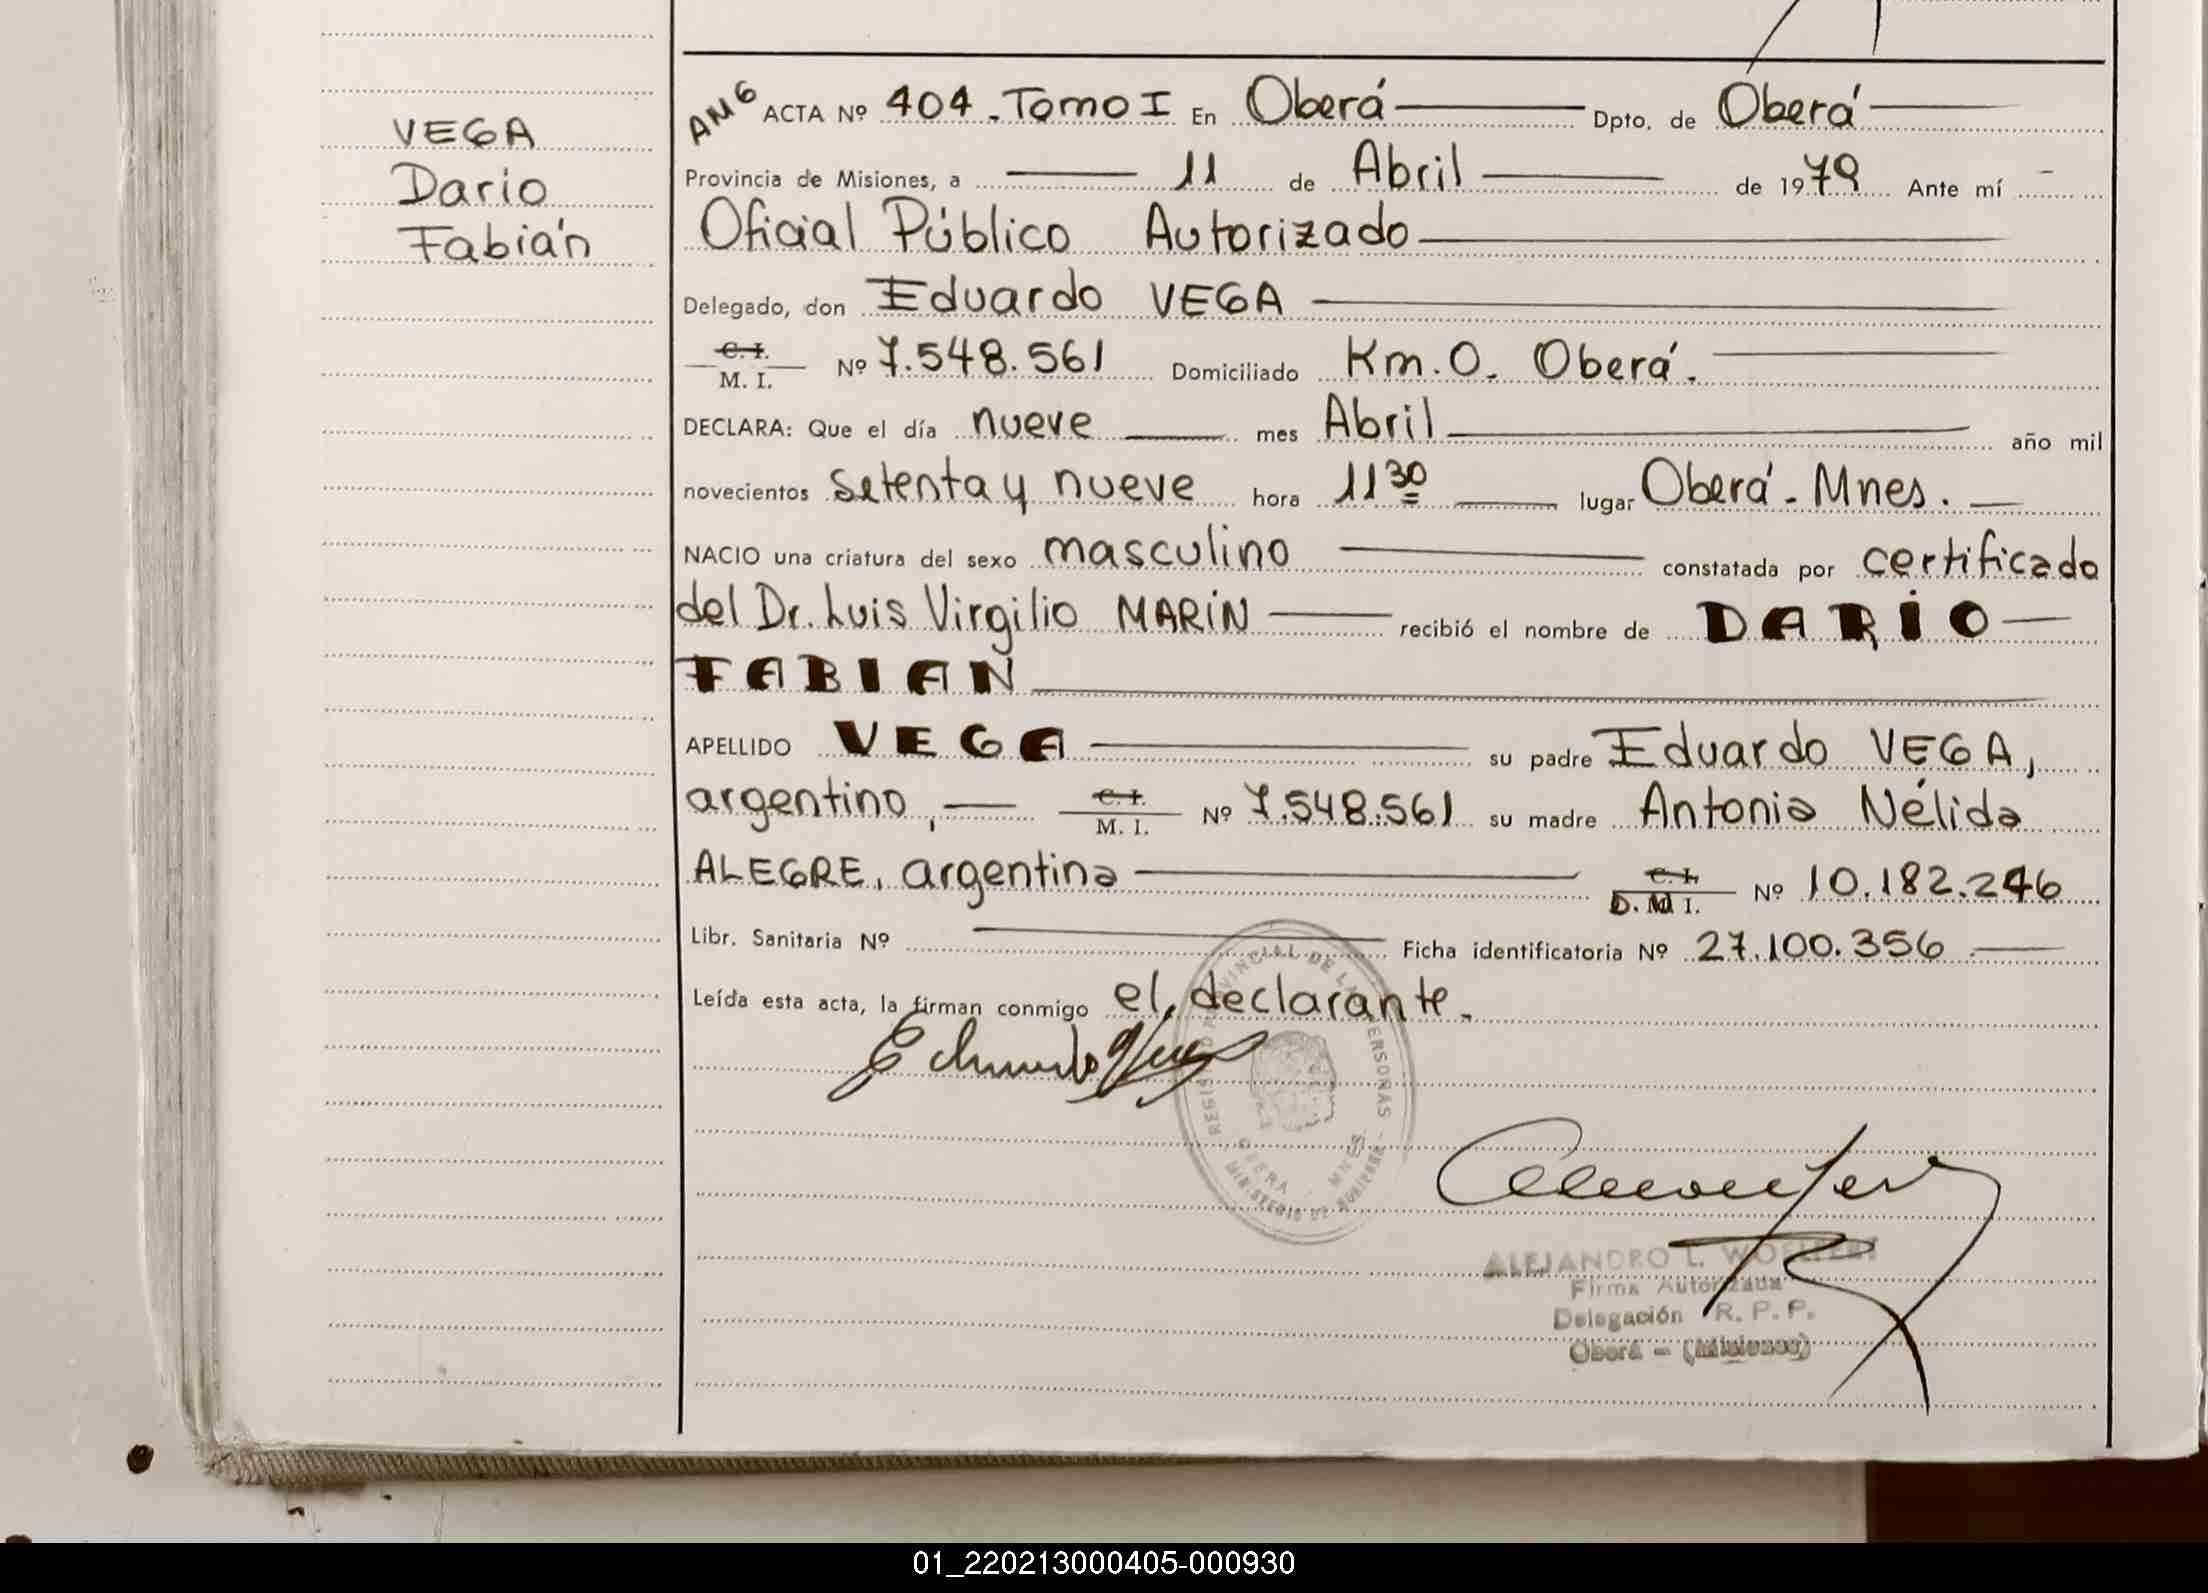 VEGA
Dario
Fabián
AMG ACTA Nº 404. Tomo I En Oberá Dpto. de Oberá
Provincia de Misiones, a 11 de Abril de 1979 Ante mí
Oficial Público Autorizado
Delegado, don Eduardo VEGA
C. I.
M. I. Nº 7.548.561 Domiciliado Km. 0. Oberá.
DECLARA: Que el día nueve mes Abril año mil
novecientos setenta y nueve hora 11 30 lugar Oberá - Mnes.
NACIO una criatura del sexo masculino constatada por certificado
del Dr. Luis Virgilio MARIN recibió el nombre de DARIO
FABIAN
APELLIDO VEGA su padre Eduardo VEGA,
argentino, C. I.
M. I. Nº 7.548.561 su madre Antonia Nélida
ALEGRE, argentina C. I.
D. M I. Nº 10.182.246
Libr. Sanitaria Nº Ficha identificatoria Nº 27.100.356
Leída esta acta, la firman conmigo el declarante.
Eduardo Vega
REGISTRO PROVINCIAL DE LAS PERSONAS
OBERA - MNES
MINISTERIO DE GOBIERNO
ALEJANDRO L.
Firma Autorizada
Delegación R. P. P.
Oberá - (Misiones)
01_220213000405-000930